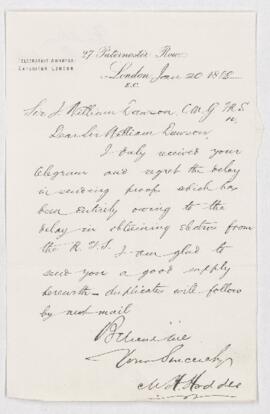 27 Paternoster Row
TELEGRAPHIC ADDRESS
EXPOSITOR LONDON
London, Jan 20 18
E.C.
Sir J. William Dawson, C.M.G. F.R.S.
Dear Sir William Dawson
I duly received your
telegram and regret the delay
in sending proof which has
been entirely owing to the
delay in obtaining electros from
the R. T. S. I am glad to
send you a good supply
herewith – duplicates will follow
by next mail
Believe me
Yours Sincerely